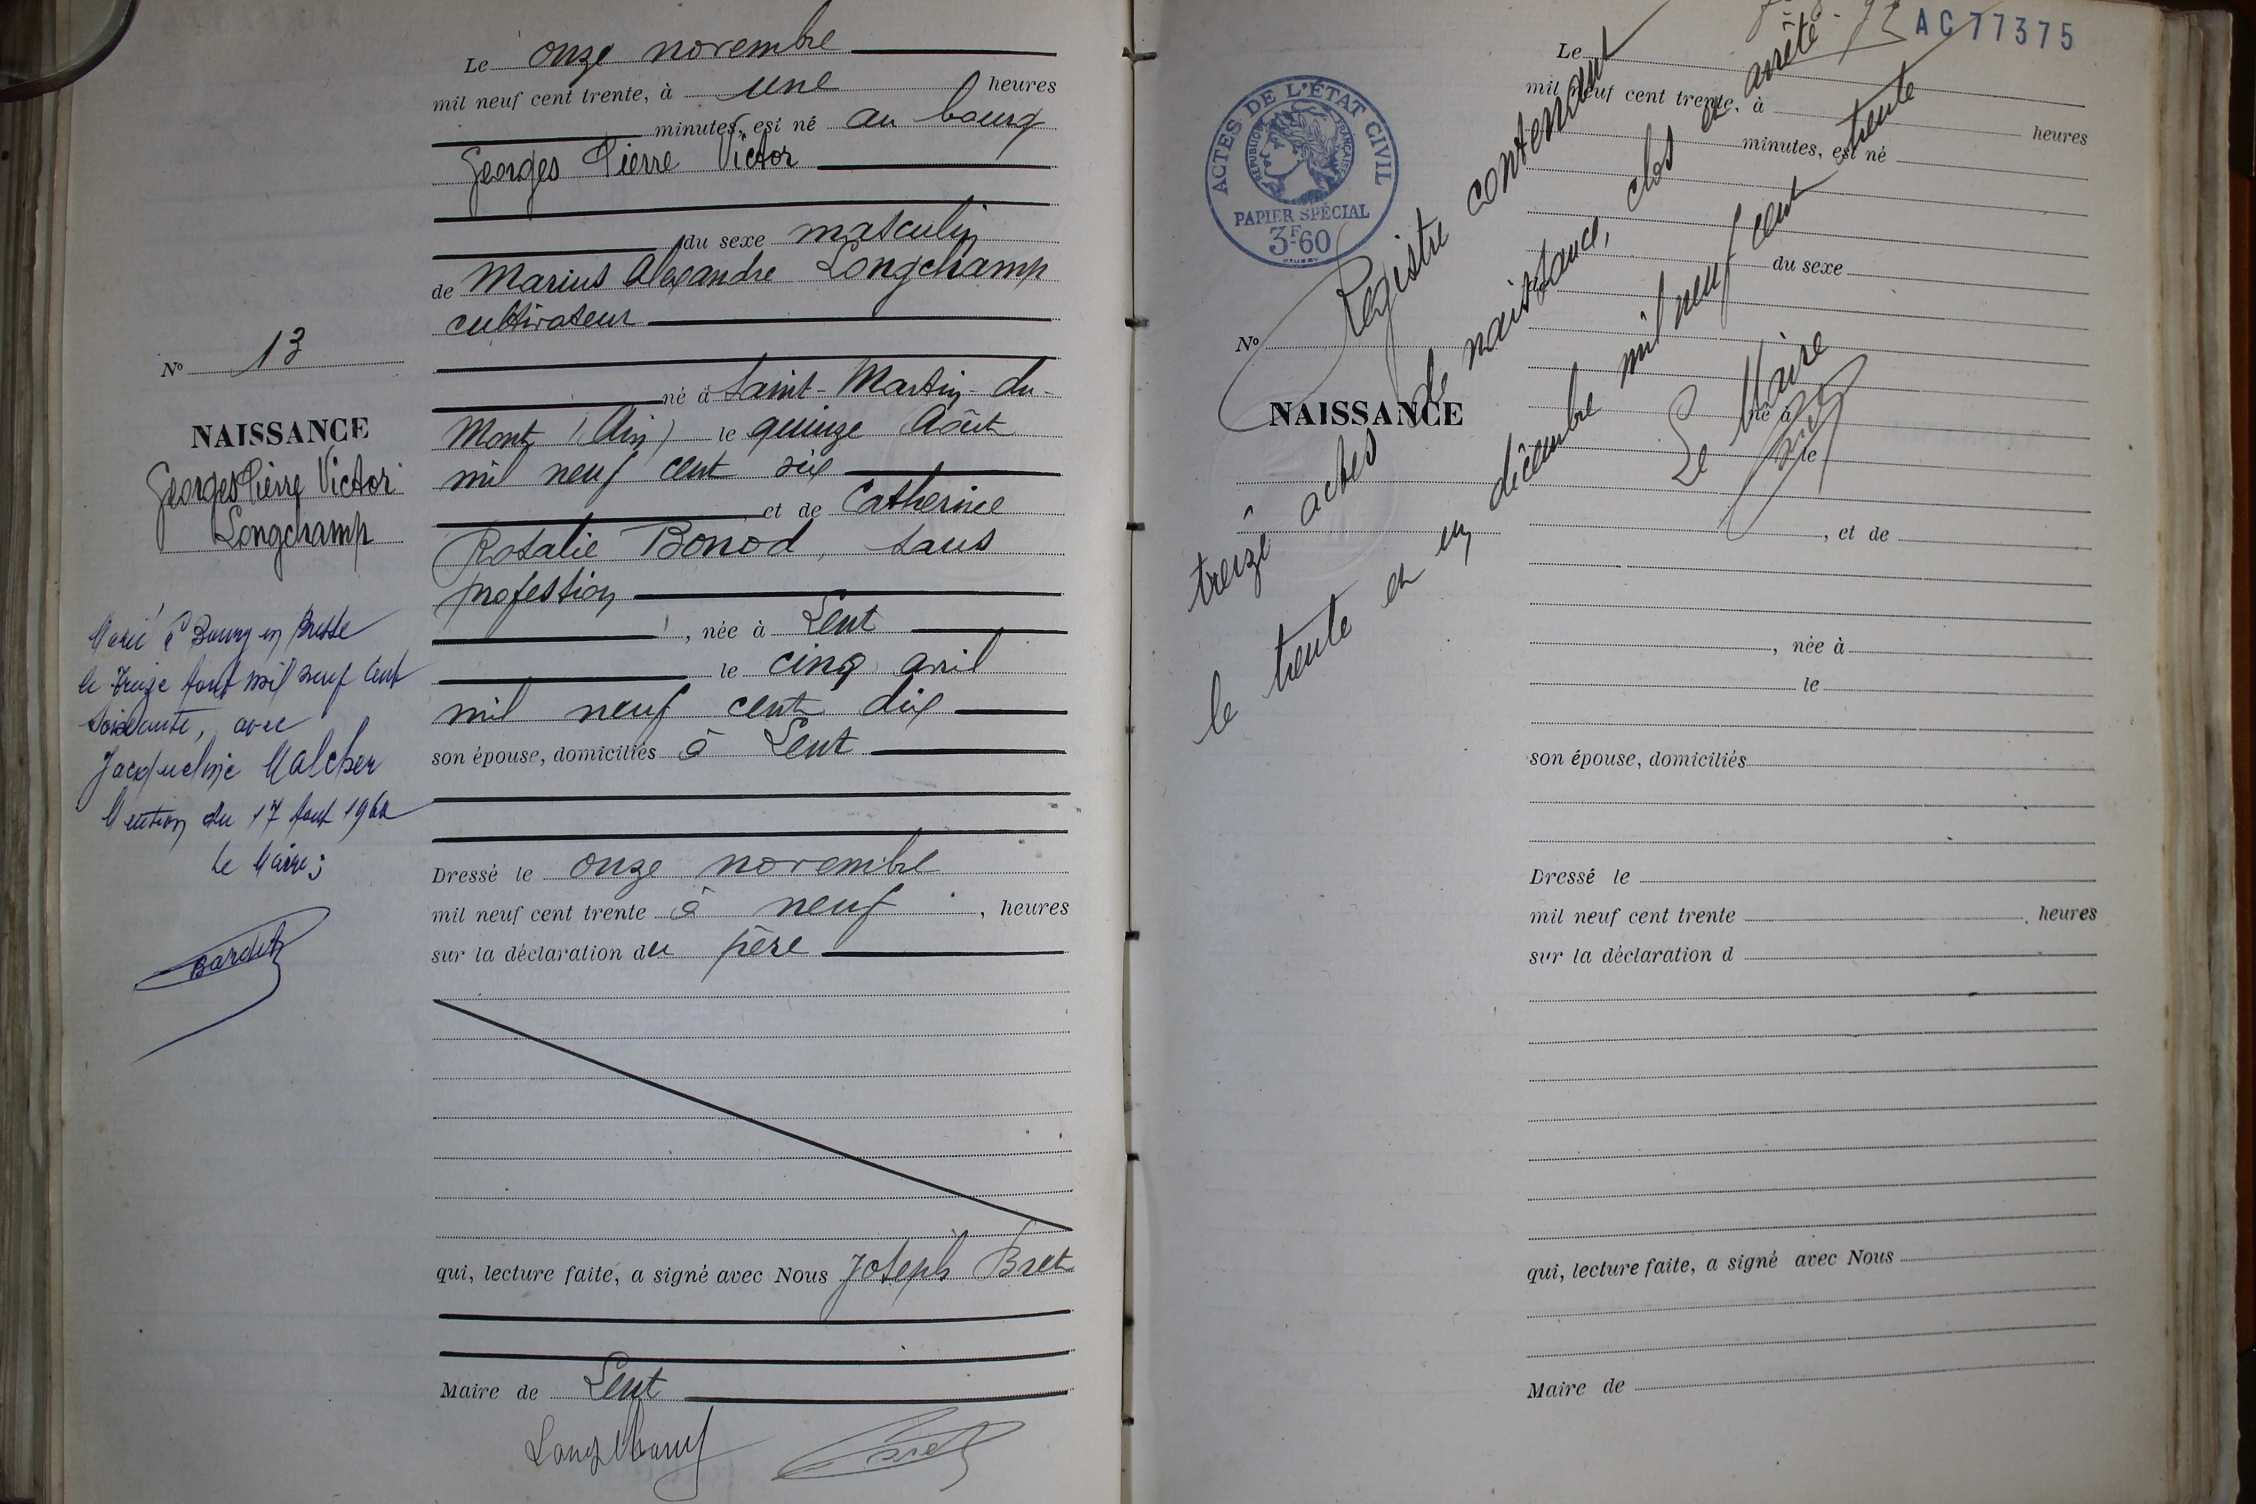 Le onze novembre
mil neuf cent trente, à une heures
minutes, est né au bourg
Georges Pierre Victor
du sexe masculin
de Marius Alexandre Longchamp
cultivateur
né à Saint-Martin-du-
Mont (Ain) le quinze Août
mil neuf cent six
et de Catherine
Rosalie Bonod, sans
profession
, née à Lent
le cinq avril
mil neuf cent dix
son épouse, domiciliés à Lent
Dressé le onze novembre
mil neuf cent trente à neuf, heures
sur la déclaration du père
qui, lecture faite, a signé avec Nous Joseph Bret
Maire de Lent
Longchamp
Bret
No 13
NAISSANCE
Georges Pierre Victor
Longchamp
Marié à Bourg en Bresse
le treize Aout mil neuf cent
soixante, avec
Jacqueline Malcher
Mention du 17 Aout 1960
Le Maire;
AC77375
ACTES DE L'ÉTAT CIVIL
RÉPUBLIQUE FRANÇAISE
PAPIER SPÉCIAL
3F60
Registre contenant
treize actes de naissance, clos et arrêté
le trente et un décembre mil neuf cent trente
Le Maire
Le
mil neuf cent trente, à heures
minutes, est né
du sexe
de
No
NAISSANCE
né à
le
, et de
, née à
le
son épouse, domiciliés
Dressé le
mil neuf cent trente , heures
sur la déclaration d
qui, lecture faite, a signé avec Nous
Maire de